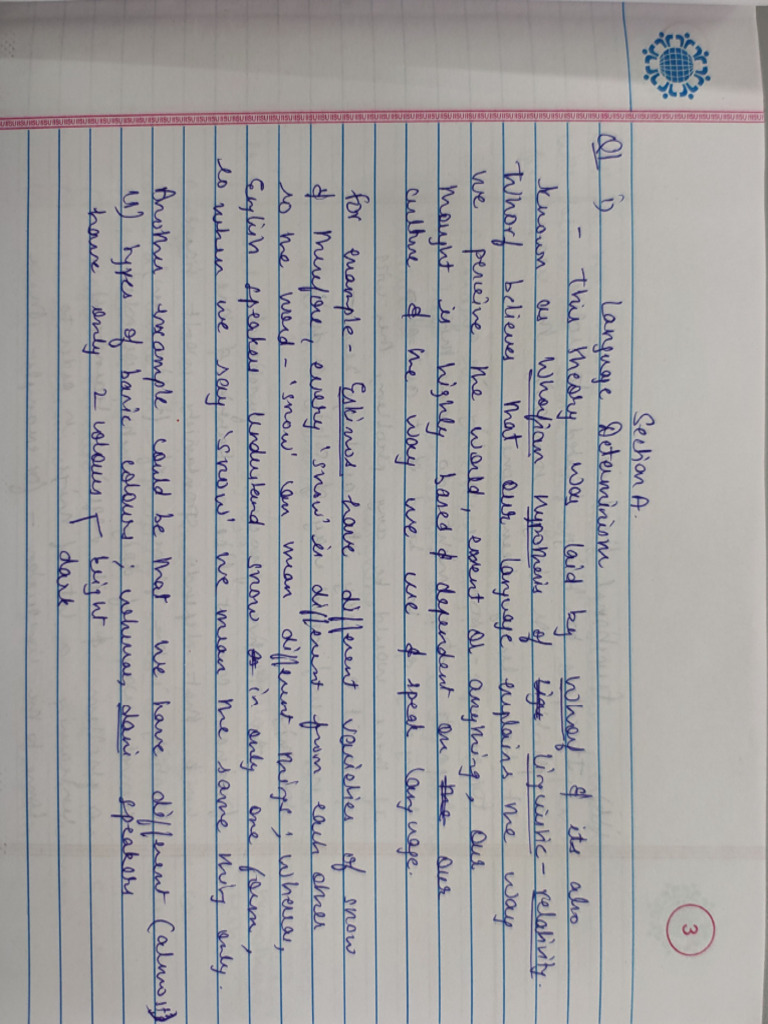 3
Section A.
Q1 i) Language Determinism
- This theory was laid by Whorf & its also
known as Whorfian Hypothesis of linguistic-relativity.
Whorf believes that our language explains the way
we perceive the world, event or anything, our
thought is highly based & dependent on our
culture & the way we use & speak language.
for example- Eskimos have different varieties of snow
& therefore, every 'snow' is different from each other
so the word - 'snow' can mean different things; whereas,
English speakers understand snow in only one form,
so when we say 'snow' we mean the same thing only.
Another example could be that we have different (almost
11) types of basic colours; whereas, dani speakers
have only 2 colours bright
dark